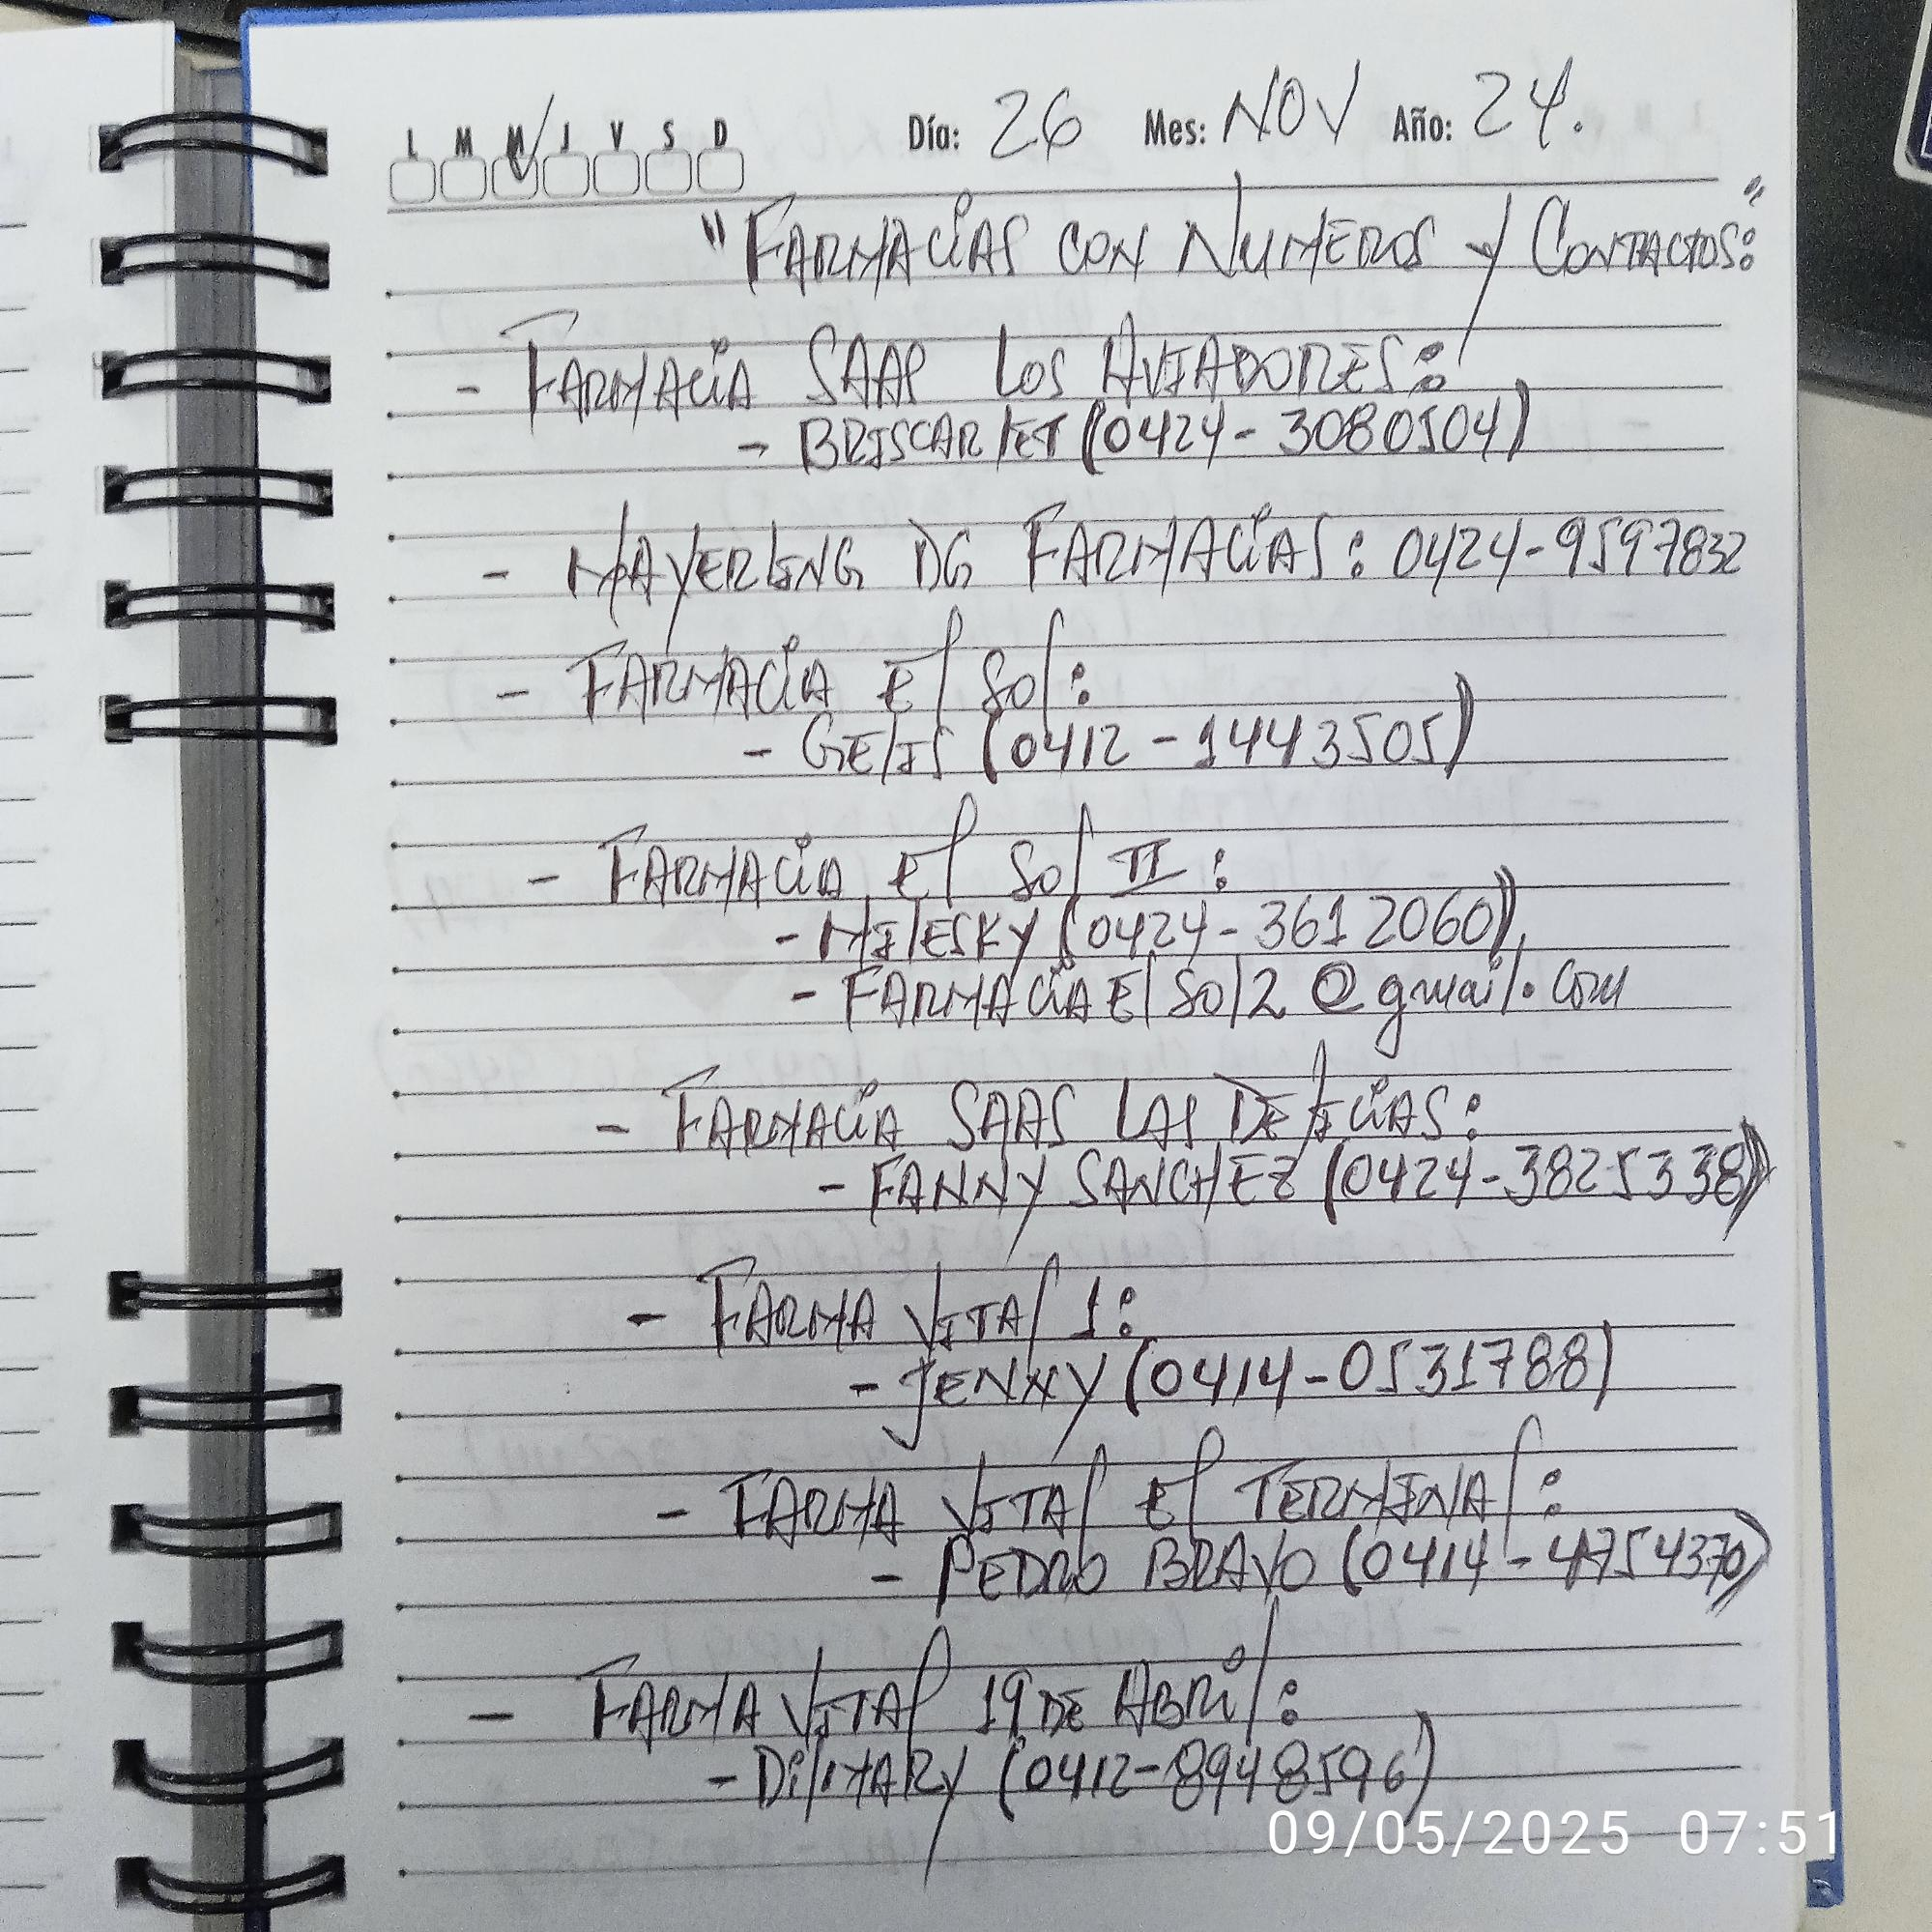 L M M J V S D Día: 26 Mes: NOV Año: 24.
"FARMACIAS CON NUMEROS Y CONTACTOS:"
- FARMACIA SAAS LOS AVIADORES:
- BRISCARLET (0424-3080504)
- MAYERLING DG FARMACIAS: 0424-9597832
- FARMACIA El Sol:
- GElIS (0412-1443505)
- FARMACIA El Sol II:
- MIlESKY (0424-3612060),
- FARMACIAElSol2@gmail.com
- FARMACIA SAAS LAS DElICIAS:
- FANNY SANCHEZ (0424-3825338)
- FARMA VITAl 1:
- JENNY (0414-0531788)
- FARMA VITAl El TERMINAl:
- PEDRO BRAVO (0414-4754370)
- FARMA VITAl 19 DE ABRil:
- DilMARY (0412-8948596)
09/05/2025 07:51